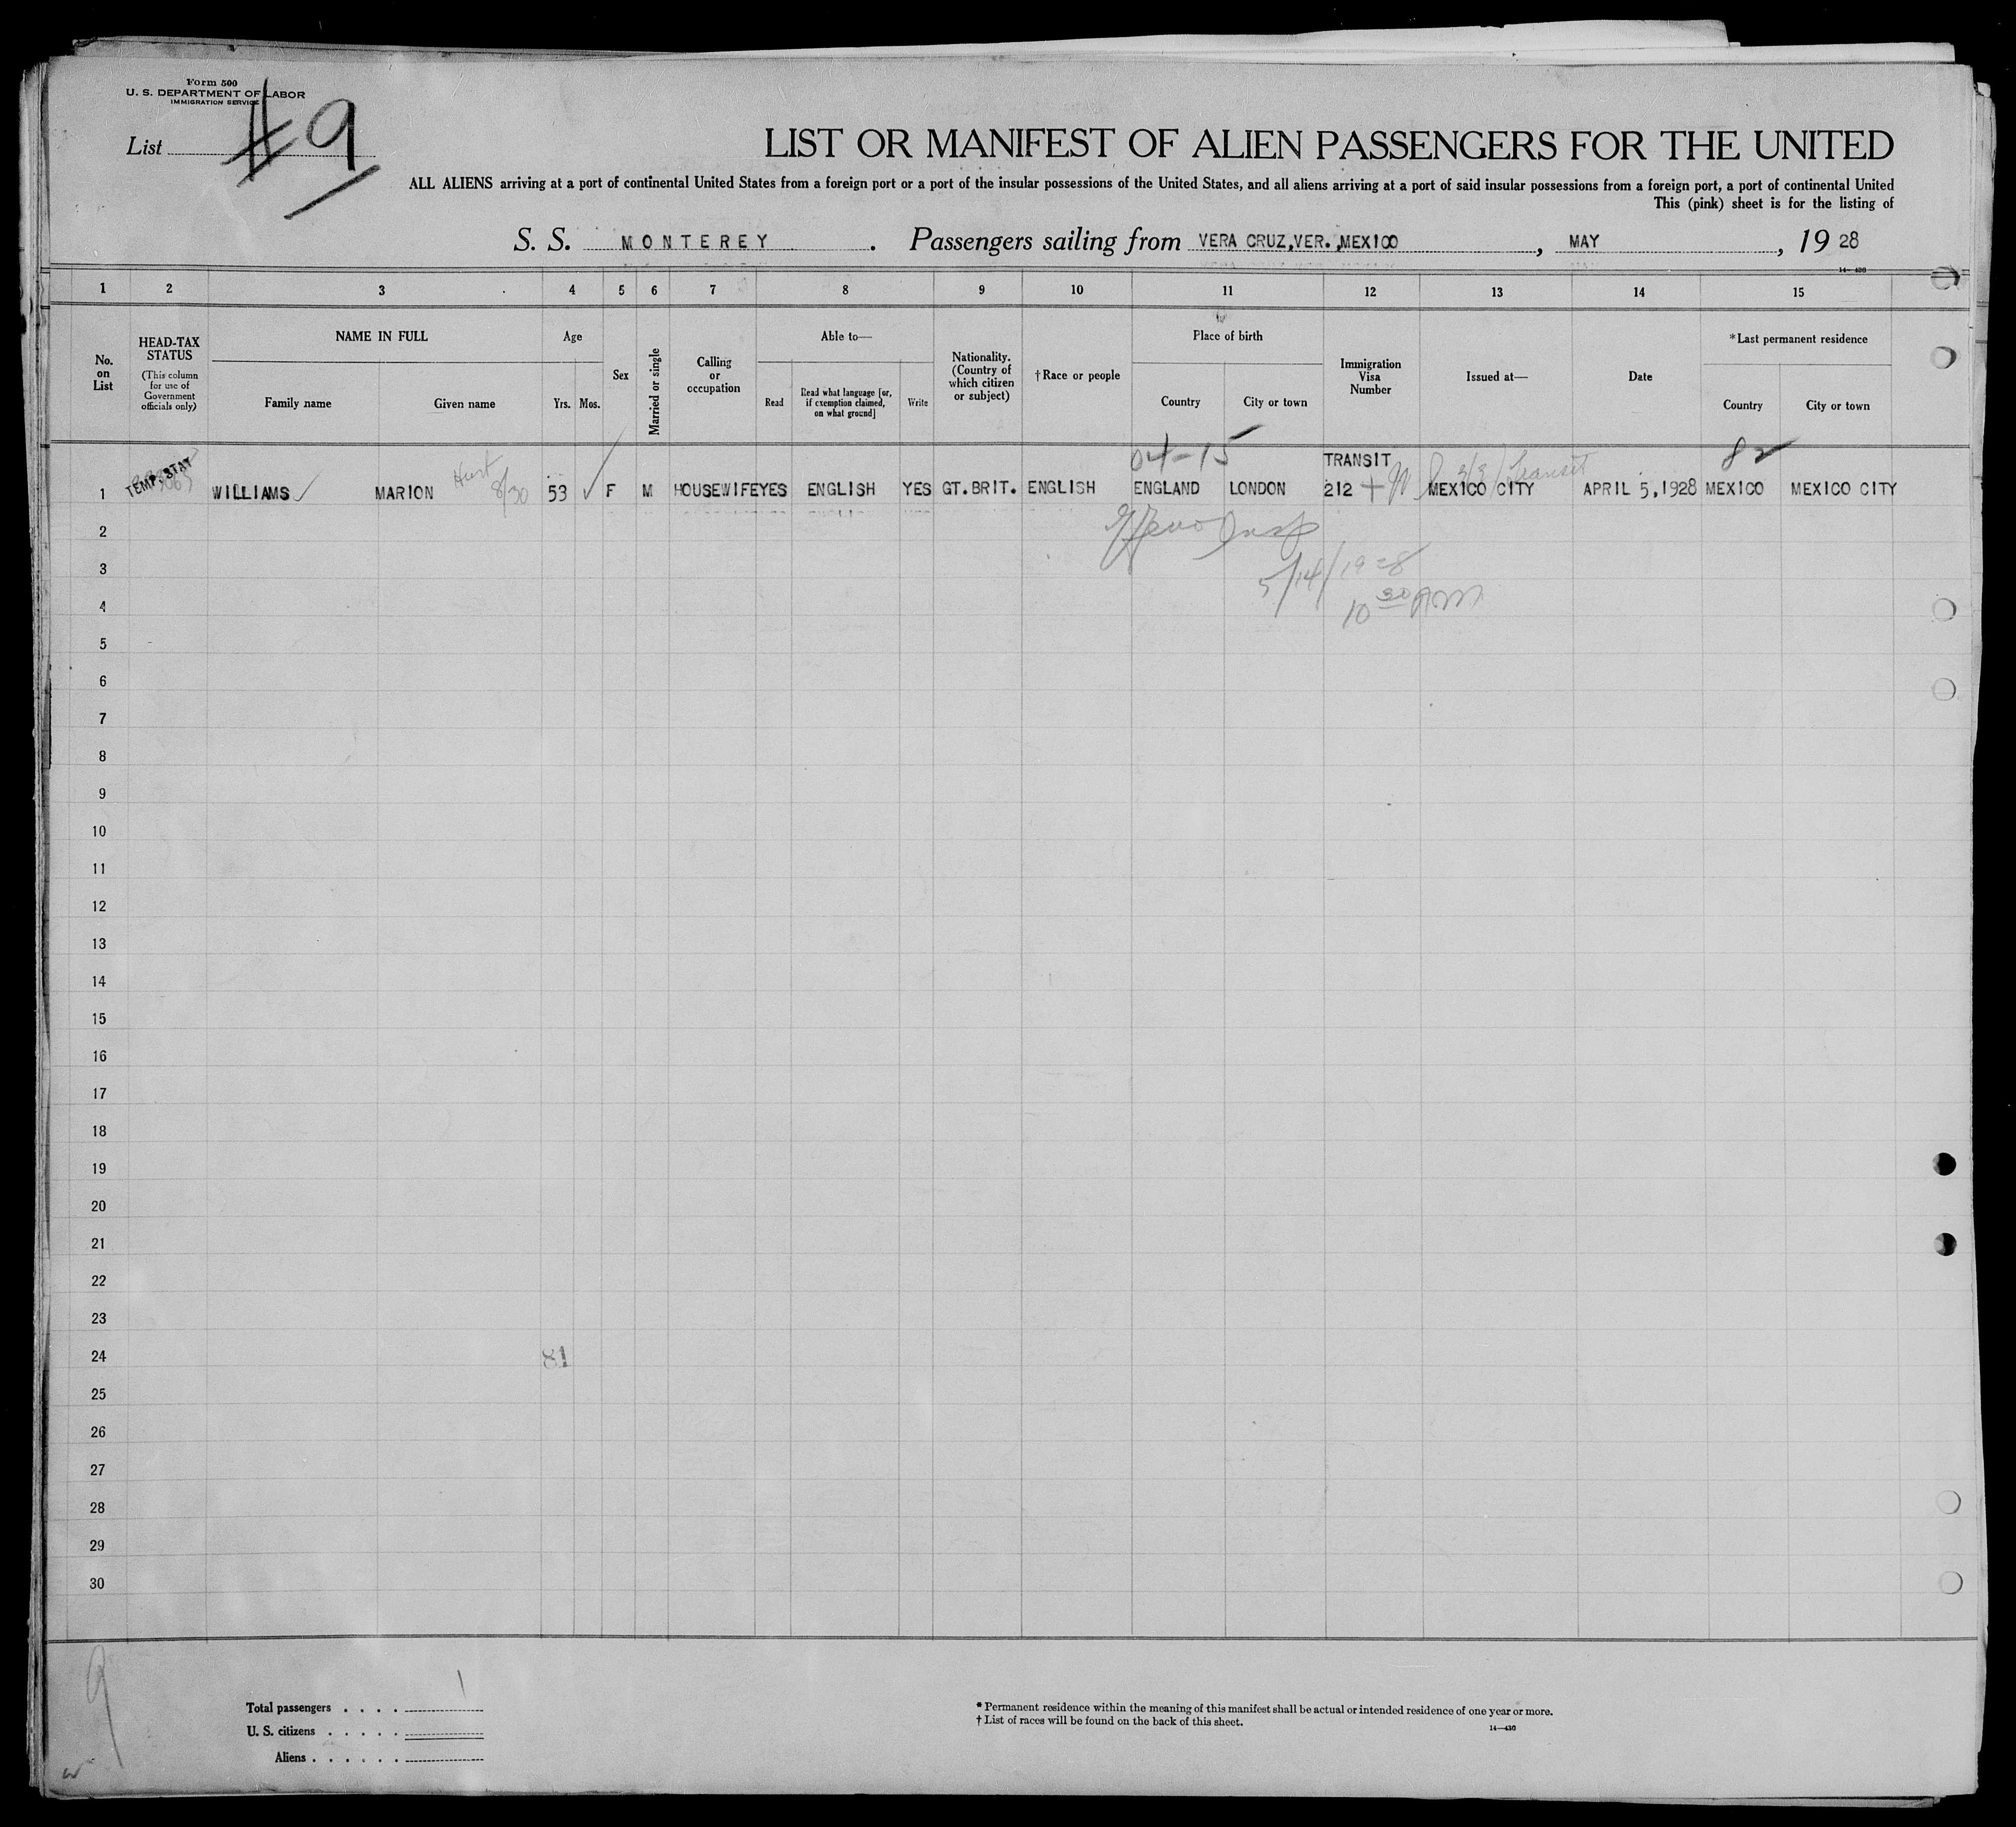 Form 500
U. S. DEPARTMENT OF LABOR
IMMIGRATION SERVICE
List #9
LIST OR MANIFEST OF ALIEN PASSENGERS FOR THE UNITED
ALL ALIENS arriving at a port of continental United States from a foreign port or a port of the insular possessions of the United States, and all aliens arriving at a port of said insular possessions from a foreign port, a port of continental United
This (pink) sheet is for the listing of
S. S. MONTEREY . Passengers sailing from VERA CRUZ, VER., MEXICO , MAY , 19 28
14—430
1 2 3 4 5 6 7 8 9 10 11 12 13 14 15
No. on List
HEAD-TAX STATUS (This column for use of Government officials only)
NAME IN FULL
Family name Given name
Age
Yrs. Mos.
Sex
Married or single
Calling or occupation
Able to—
Read
Read what language [or, if exemption claimed, on what ground]
Write
Nationality. (Country of which citizen or subject)
†Race or people
Place of birth
Country City or town
Immigration Visa Number
Issued at—
Date
*Last permanent residence
Country City or town
04-15 TRANSIT 82
1 TEMP. STAT WILLIAMS MARION 8/30 53 F M HOUSEWIFE YES ENGLISH YES GT.BRIT. ENGLISH ENGLAND LONDON 212 + MEXICO CITY Transit APRIL 5,1928 MEXICO MEXICO CITY
2
3 5/14/1928
4 10 30 AM
5
6
7
8
9
10
11
12
13
14
15
16
17
18
19
20
21
22
23
24 81
25
26
27
28
29
30
9
Total passengers . . . . 1
U. S. citizens . . . . .
Aliens . . . . . .
* Permanent residence within the meaning of this manifest shall be actual or intended residence of one year or more.
† List of races will be found on the back of this sheet.
14—430